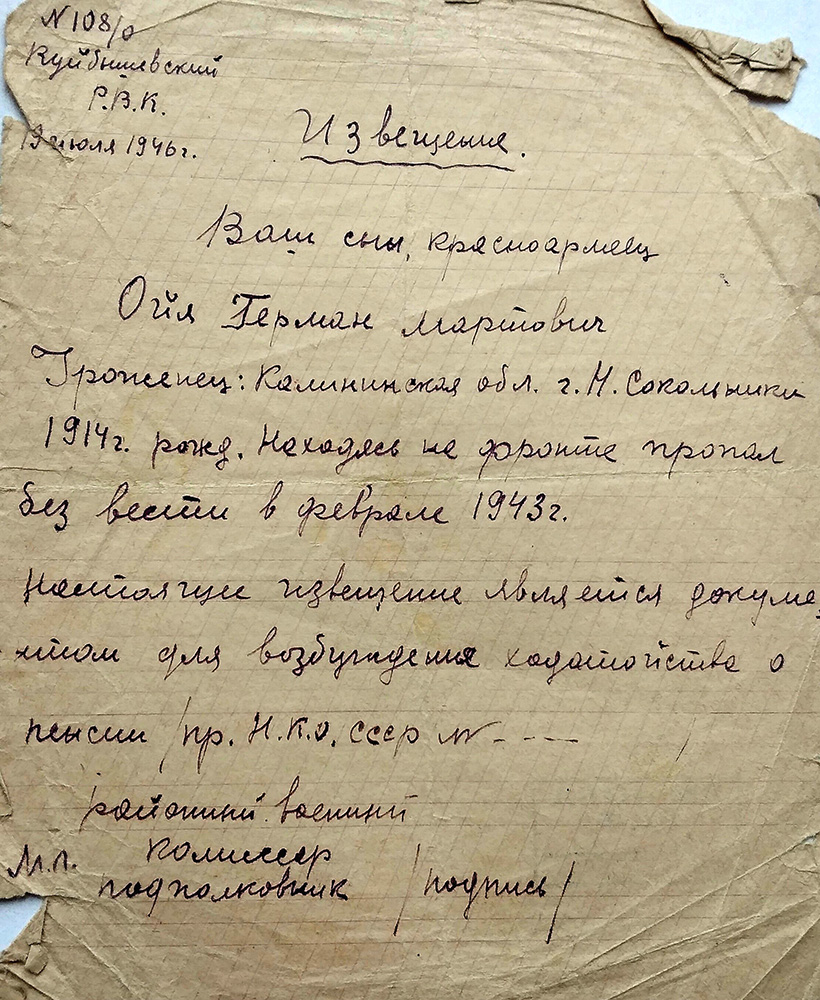 N 108/о
Куйбышевский
Р.В.К.
19 июля 1946г.
Извещение.
Ваш сын, красноармеец
Ойя Герман Мартович
Уроженец: Калининская обл. г. Н. Сокольники
1914г. рожд. Находясь на фронте пропал
без вести в феврале 1943г.
Настоящее извещение является докуме-
нтом для возбуждения ходатойства о
пенсии /пр. Н.К.О. СССР № ----
районный военный
М.П. комиссар
подполковник /подпись/